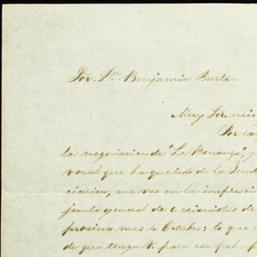 Sor. Dn. Benjamin Burton
Muy Sor. mio
Por ca
la negociacion de "La Bonanza",
vocal que ha quedado de la Junt
ciacion, me veo en la imprescin
junta general de accionistas de
proximo mes de Octubre: lo que
de que tenga V. para